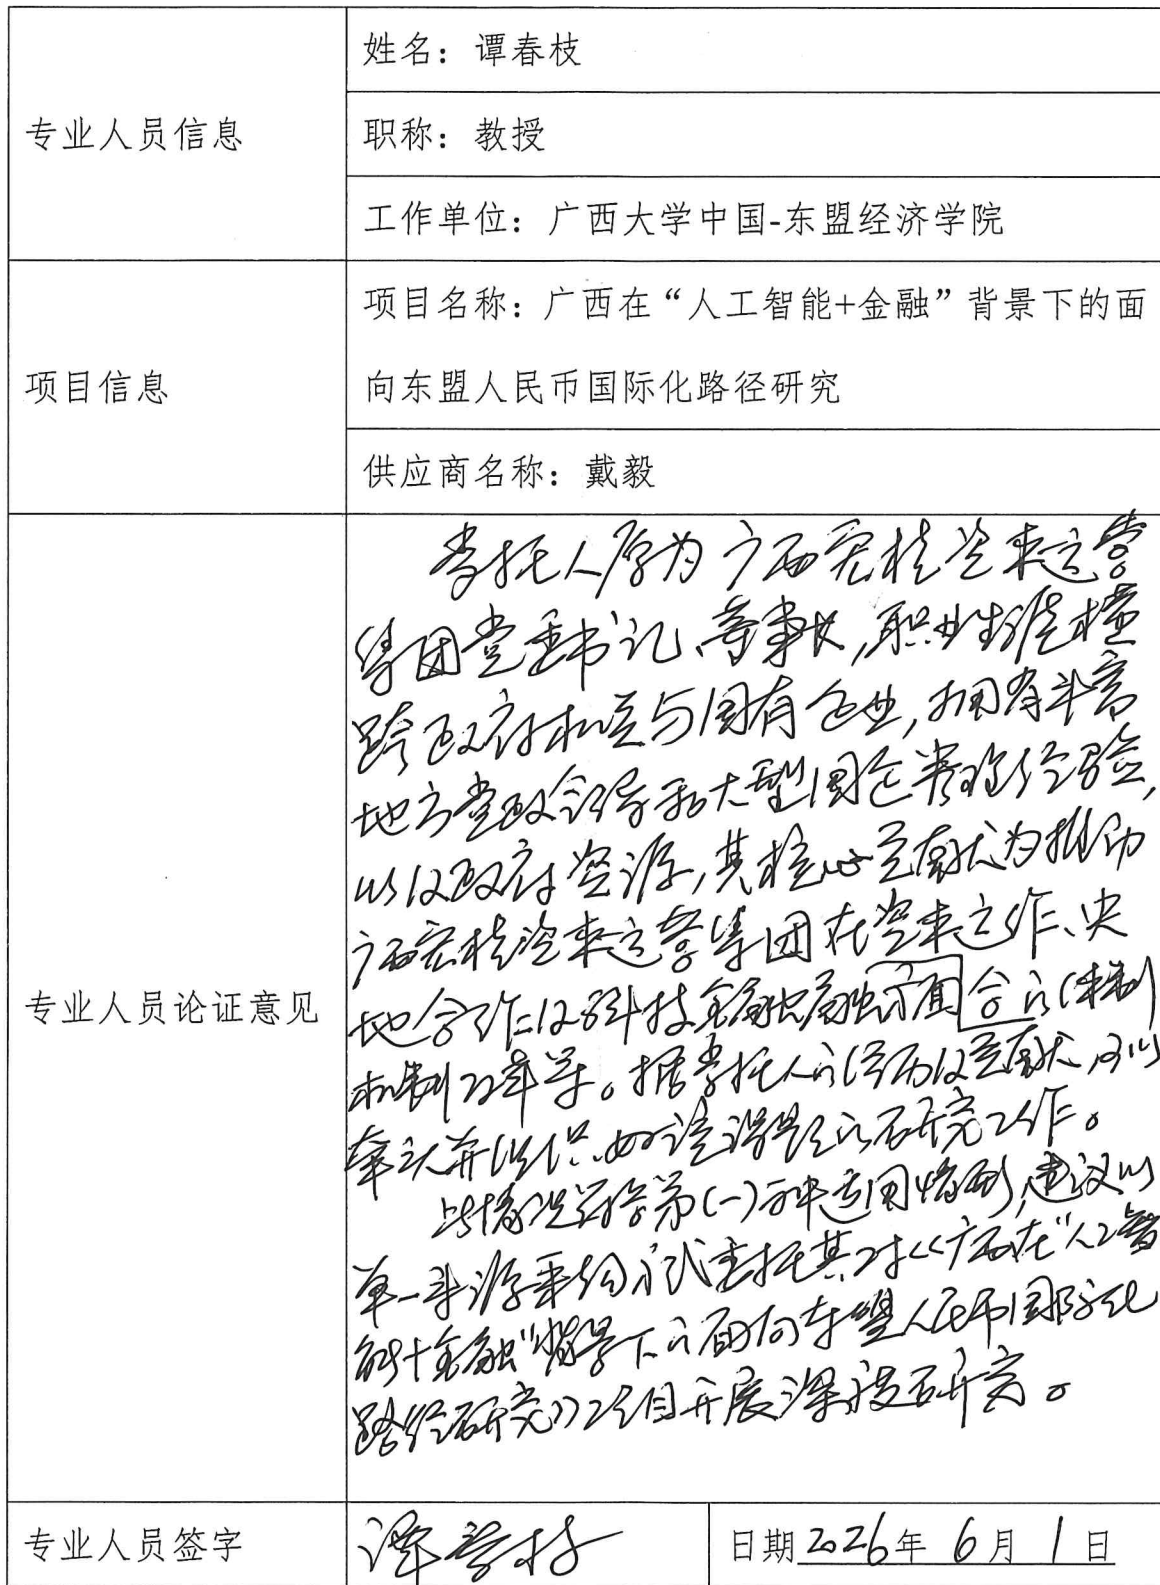 专业人员信息
姓名：谭春枝
职称：教授
工作单位：广西大学中国-东盟经济学院
项目信息
项目名称：广西在“人工智能+金融”背景下的面
向东盟人民币国际化路径研究
供应商名称：戴毅
专业人员论证意见
委托人原为广西宏桂资本运营
集团党委书记、董事长，职业生涯横
跨政府机关与国有企业，拥有丰富
地方党政领导和大型国企管理经验，
以及政府资源，其核心贡献为推动
广西宏桂资本运营集团在资本运作、央
地合作以及科技金融融合方面的体制
机制改革等。据委托人的经历及贡献，可以
牵头并组织好该课题的研究工作。
此情况符合第(一)种适用情形，建议以
单一来源采购方式委托其对《广西在“人工智
能+金融”背景下的面向东盟人民币国际化
路径研究》项目开展深度研究。
专业人员签字
谭春枝
日期2026年6月1日